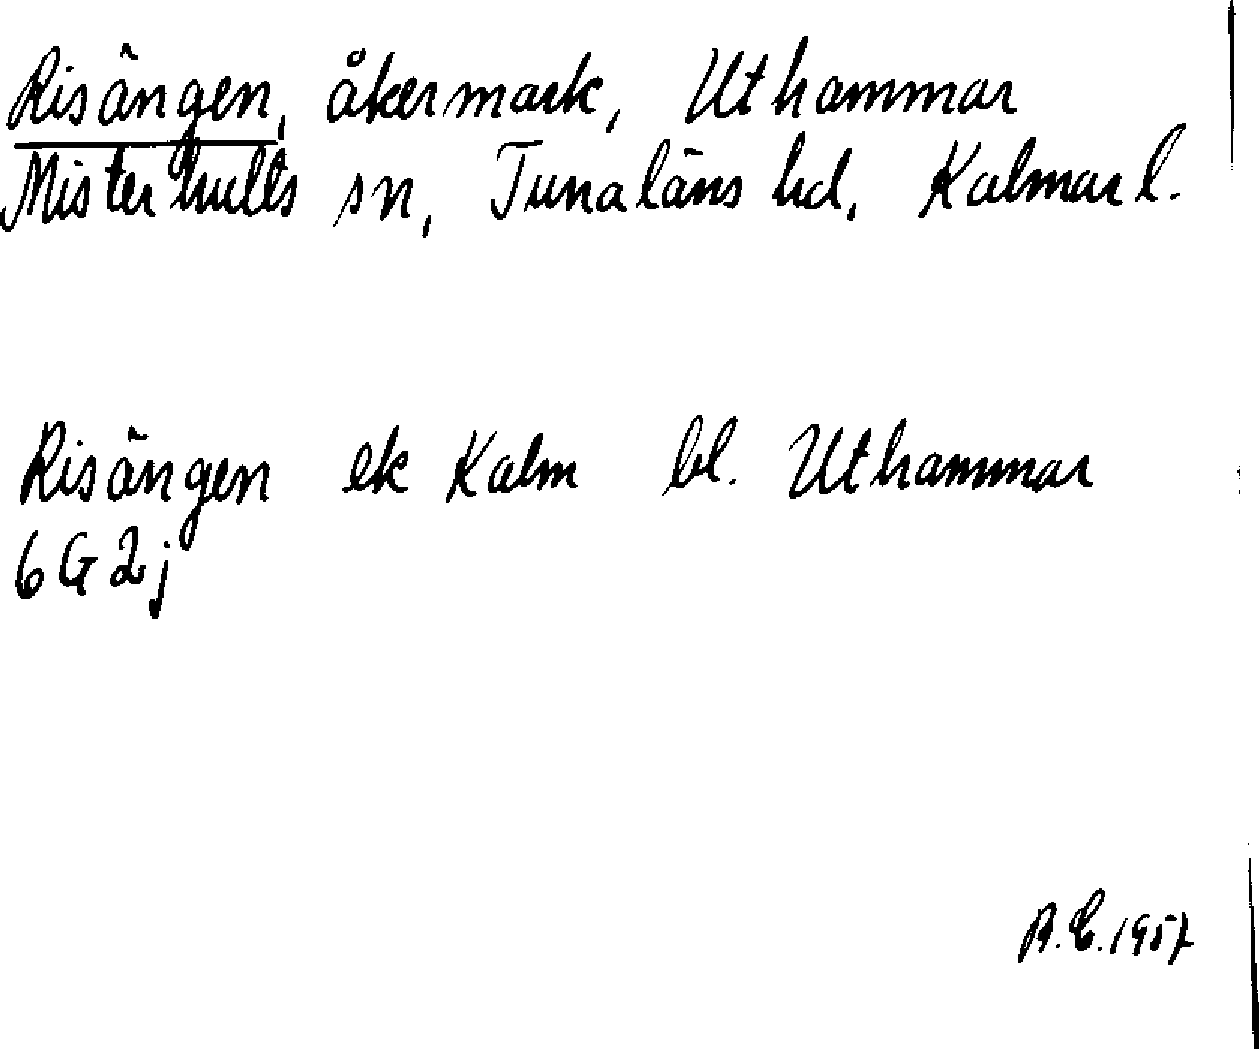 Risängen, åkermark, Uthammar
Misterhults sn, Tunaläns hd, Kalmar l.
Risängen ek Kalm bl. Uthammar
6G2j
1957